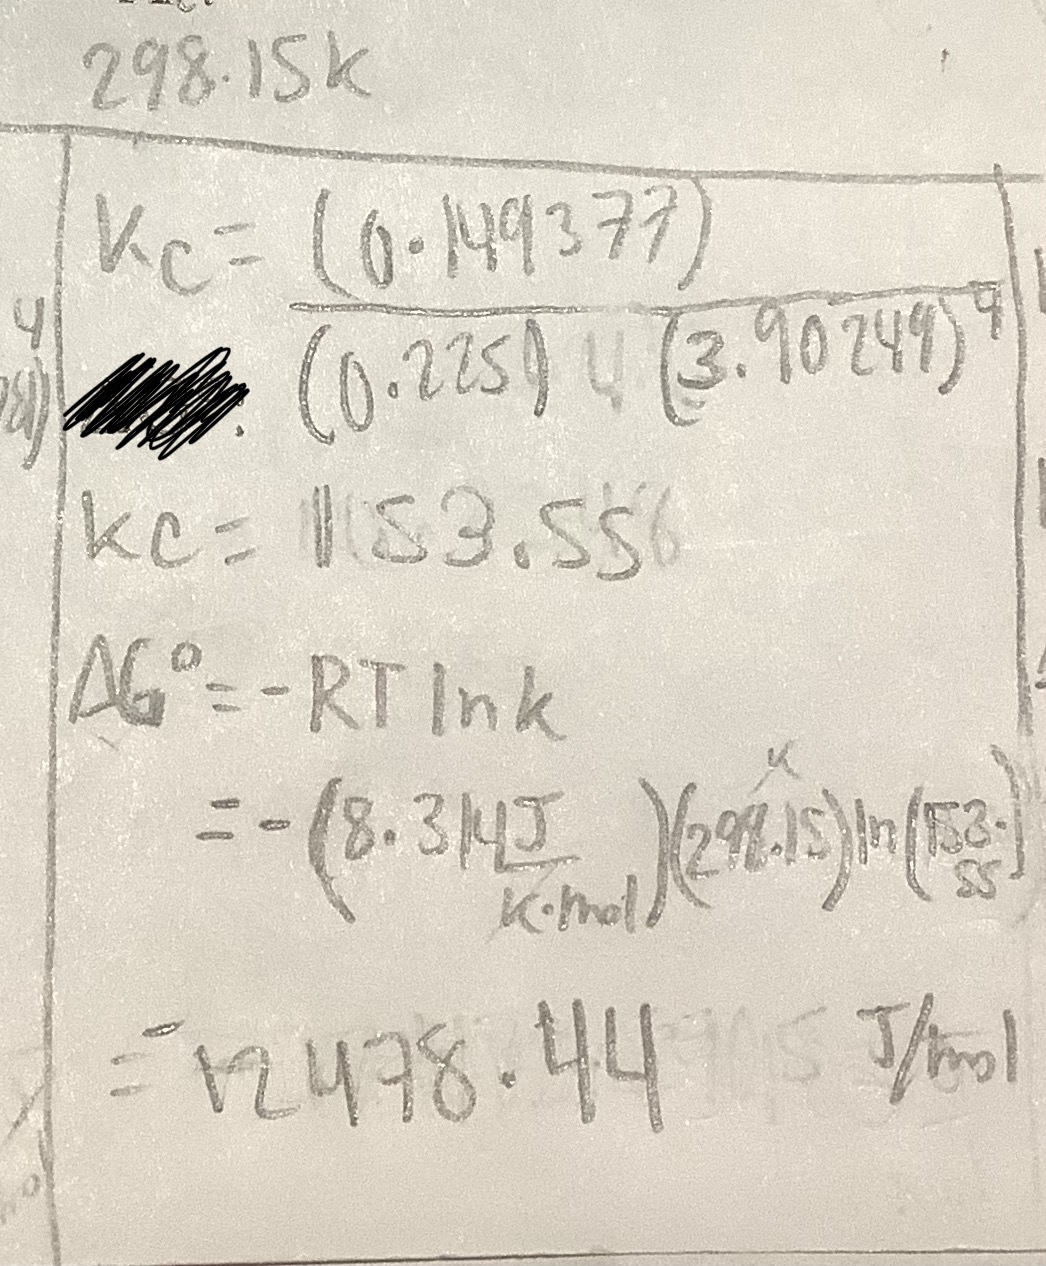 298.15K
Kc = (0.149377)
(0.225) (3.90249)⁴
Kc = 153.55
ΔG° = -RT ln k
= -(8.314 J
K·mol)(298.15)ln(153.
55)
= -12478.44 J/mol